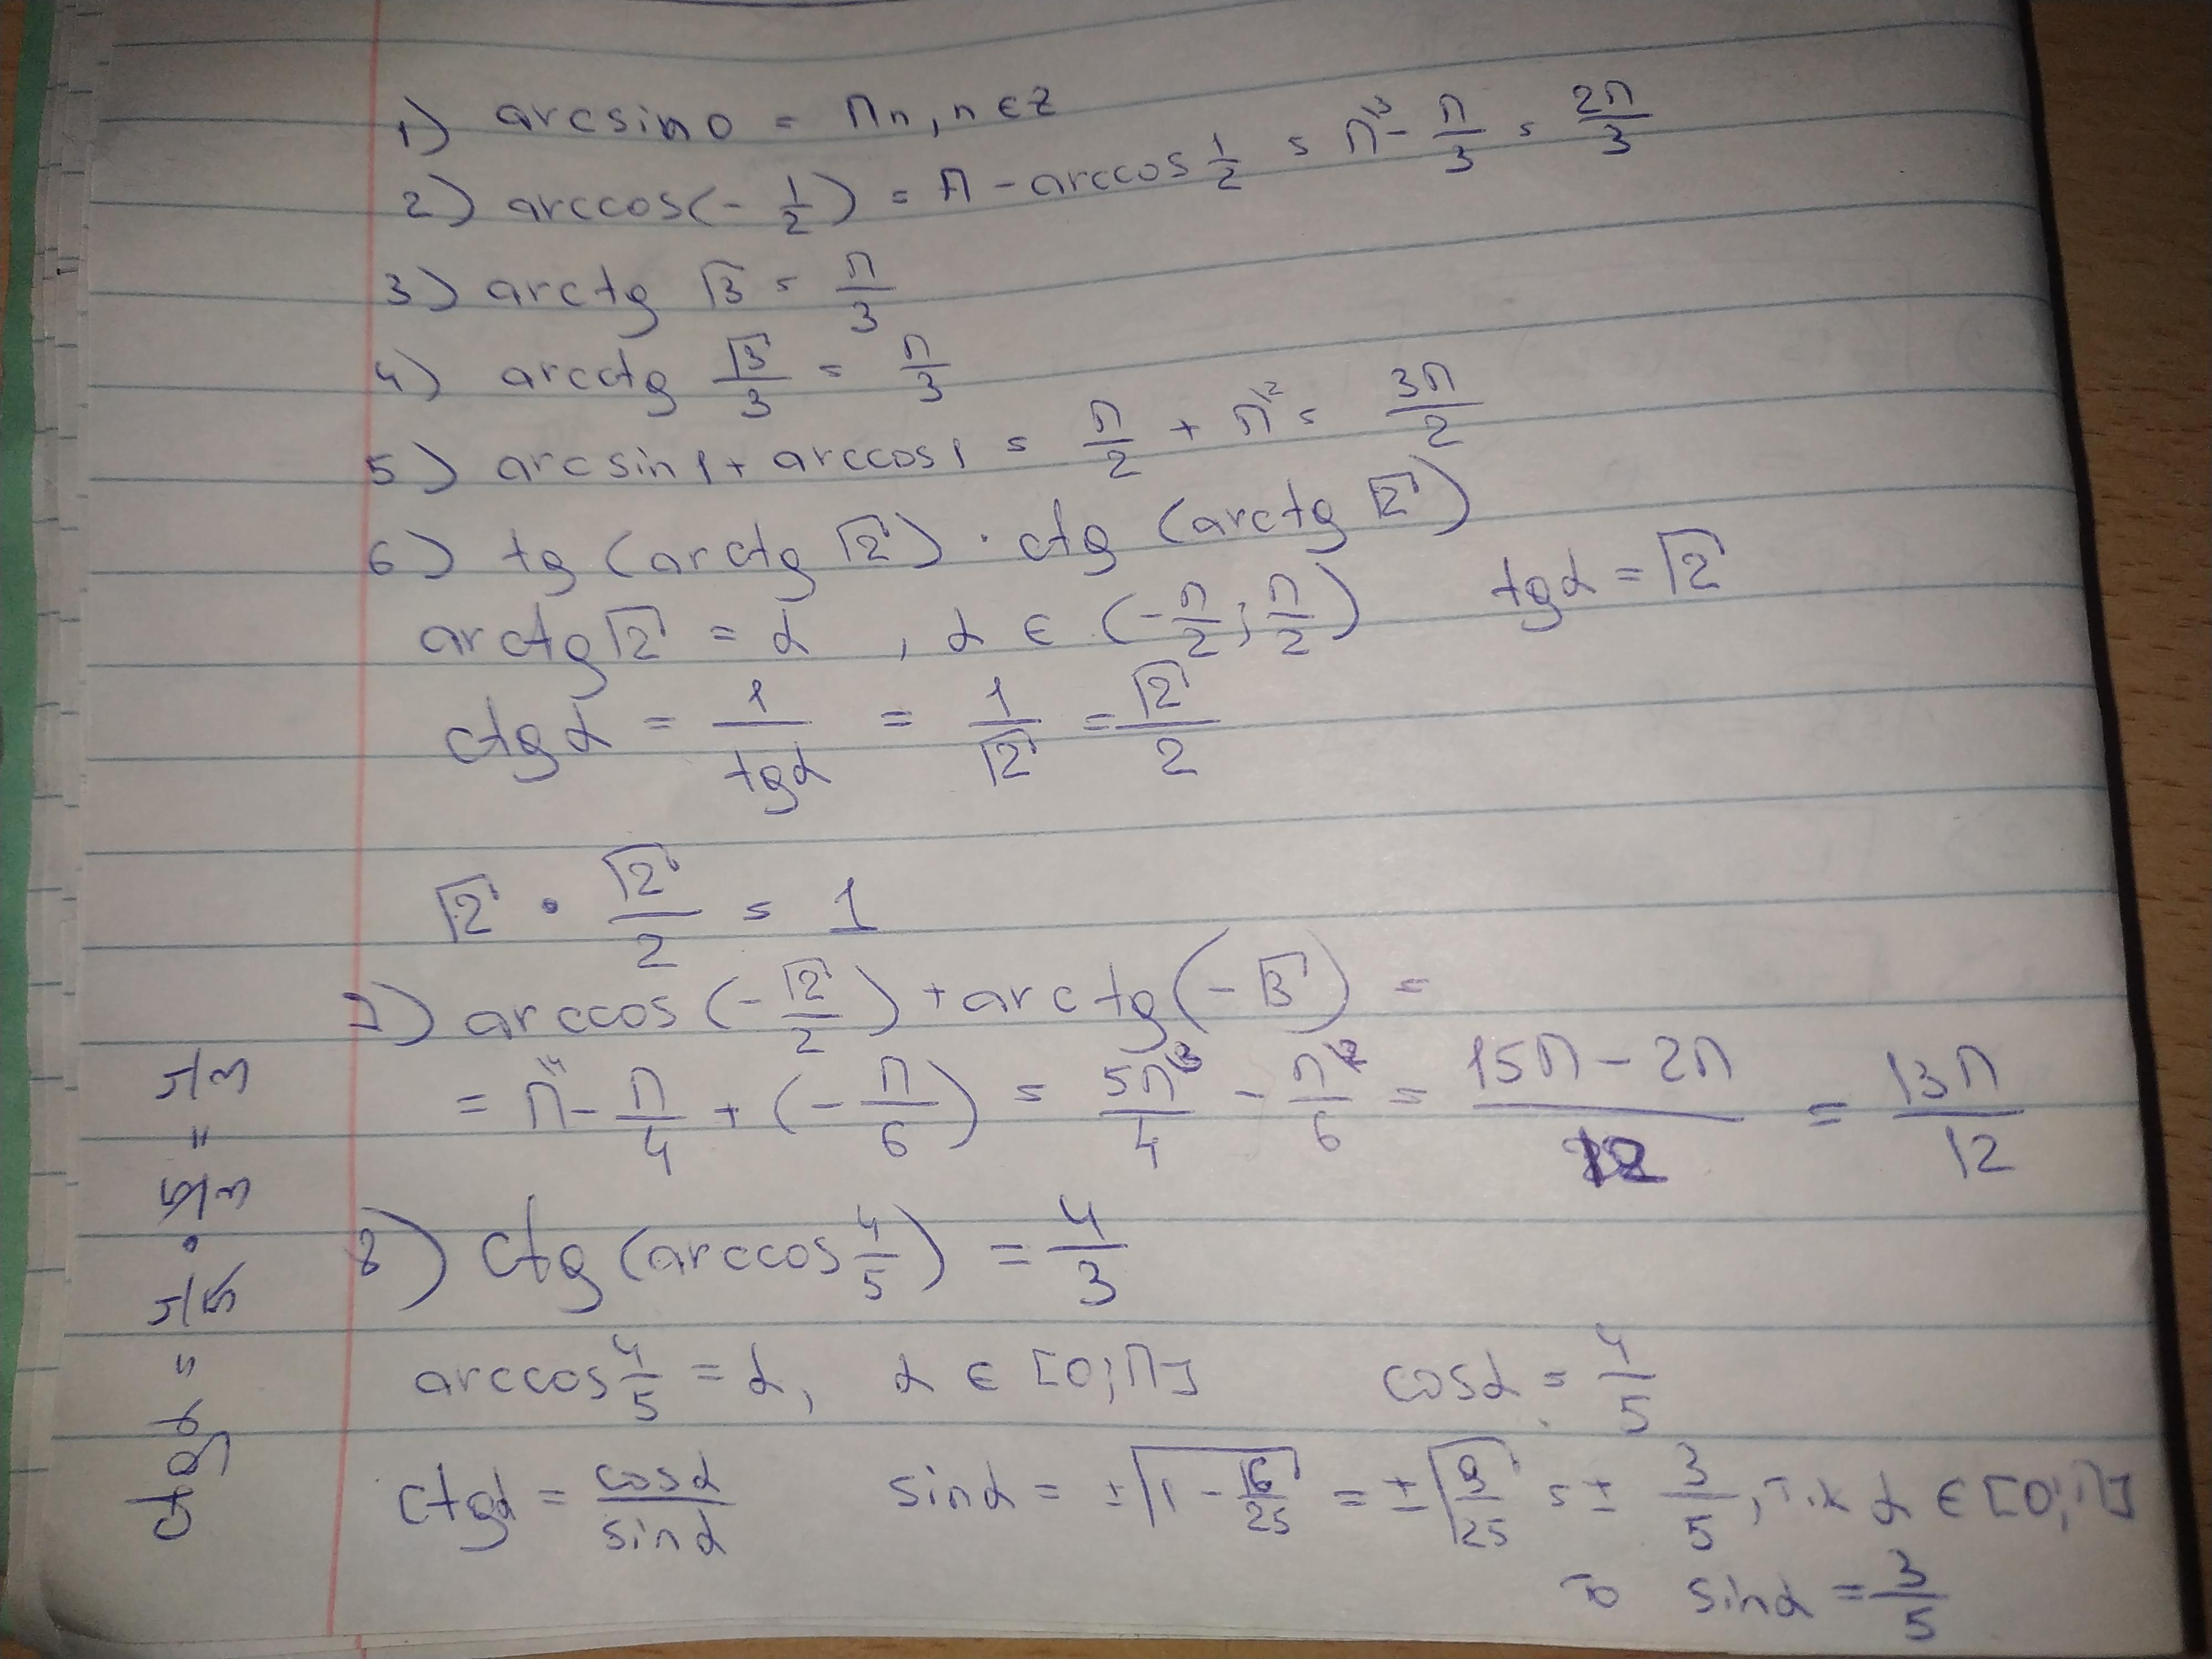 1) arcsin 0 = πn, n ∈ Z
2) arccos(-1/2) = π - arccos 1/2 = π\3 - π/3 = 2π/3
3) arctg √3 = π/3
4) arcctg √3/3 = π/3
5) arcsin 1 + arccos 1 = π/2 + π\2 = 3π/2
6) tg (arctg √2) · ctg (arctg √2)
arctg √2 = α , α ∈ (-π/2; π/2) tgα = √2
ctgα = 1/tgα = 1/√2 = √2/2
√2 · √2/2 = 1
7) arccos (-√2/2) + arctg (-√3) =
= π\4 - π/4 + (-π/6) = 5π\3/4 - π\2/6 = 15π - 2π/12 = 13π/12
8) ctg (arccos 4/5) = 4/3
arccos 4/5 = α, α ∈ [0; π] cosα = 4/5
ctgα = cosα/sinα sinα = ±√(1 - 16/25) = ±√(9/25) = ± 3/5, т.к α ∈ [0; π]
то sinα = 3/5
ctgα = 4/5 · 5/3 = 4/3